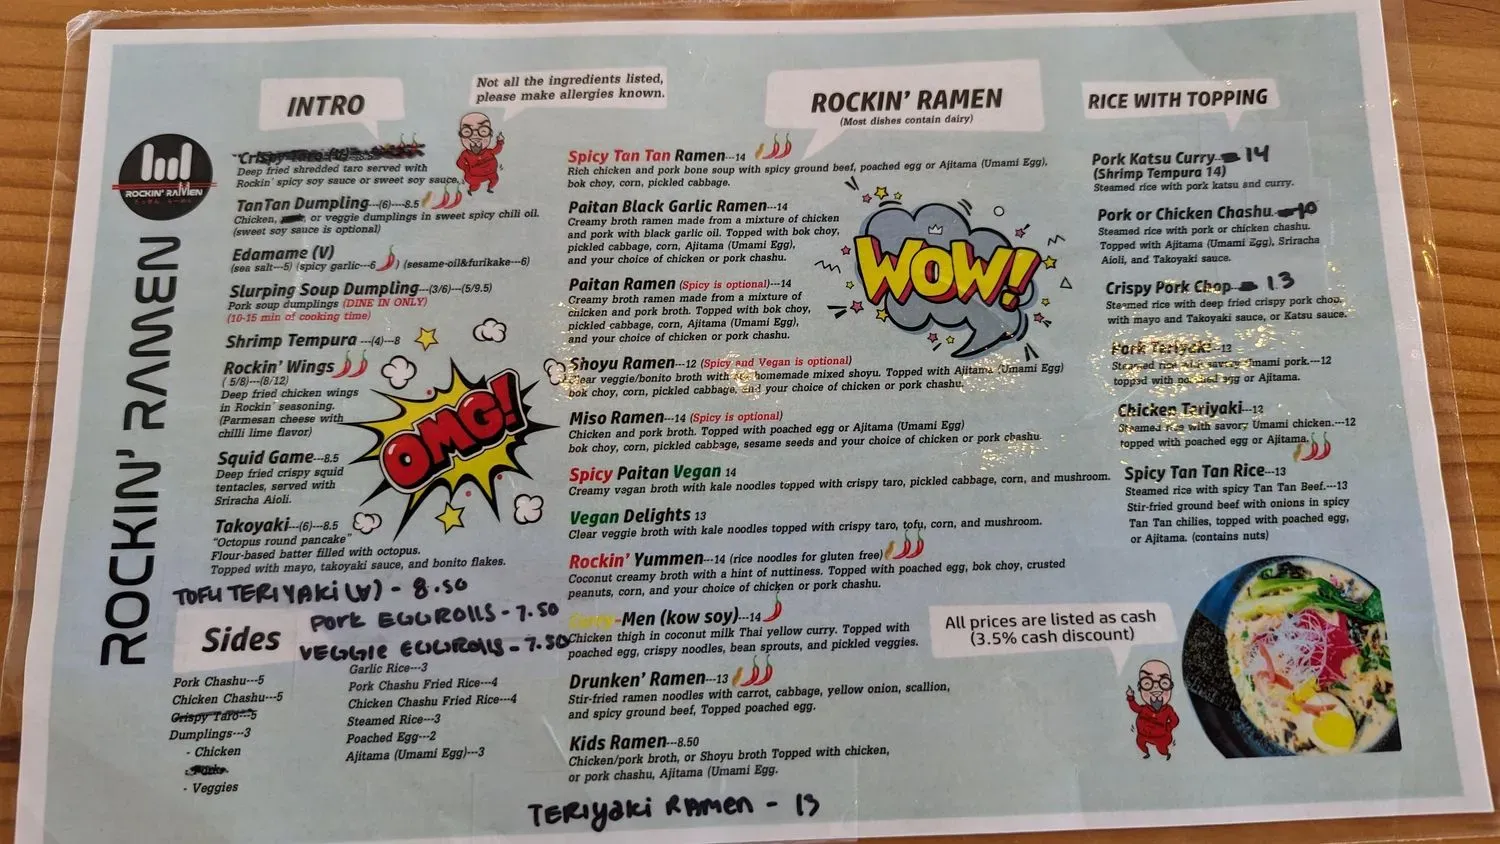 ROCKIN' RAMEN
ROCKIN' RAMEN
INTRO
Not all the ingredients listed,
please make allergies known.
Crispy Taro (V)
Deep fried shredded taro served with
Rockin' spicy soy sauce or sweet soy sauce.
TanTan Dumpling---(6)----8.5
Chicken, or veggie dumplings in sweet spicy chili oil.
(sweet soy sauce is optional)
Edamame (V)
(sea salt---5) (spicy garlic---6 ) (sesame-oil&furikake---6)
Slurping Soup Dumpling---(3/6)---(5/9.5)
Pork soup dumplings (DINE IN ONLY)
(10-15 min of cooking time)
Shrimp Tempura ---(4)---8
Rockin' Wings
( 5/8)---(8/12)
Deep fried chicken wings
in Rockin' seasoning.
(Parmesan cheese with
chilli lime flavor)
OMG!
Squid Game---8.5
Deep fried crispy squid
tentacles, served with
Sriracha Aioli.
Takoyaki---(6)---8.5
"Octopus round pancake"
Flour-based batter filled with octopus.
Topped with mayo, takoyaki sauce, and bonito flakes.
TOFU TERIYAKI (V) - 8.50
PORK EGGROLLS - 7.50
VEGGIE EGGROLLS - 7.50
Sides
Pork Chashu---5
Chicken Chashu---5
Crispy Taro---5
Dumplings---3
- Chicken
- Pork
- Veggies
Garlic Rice---3
Pork Chashu Fried Rice---4
Chicken Chashu Fried Rice----4
Steamed Rice---3
Poached Egg---2
Ajitama (Umami Egg)---3
ROCKIN' RAMEN
(Most dishes contain dairy)
Spicy Tan Tan Ramen---14
Rich chicken and pork bone soup with spicy ground beef, poached egg or Ajitama (Umami Egg),
bok choy, corn, pickled cabbage.
Paitan Black Garlic Ramen---14
Creamy broth ramen made from a mixture of chicken
and pork with black garlic oil. Topped with bok choy,
pickled cabbage, corn, Ajitama (Umami Egg),
and your choice of chicken or pork chashu.
WOW!
Paitan Ramen (Spicy is optional)---14
Creamy broth ramen made from a mixture of
chicken and pork broth. Topped with bok choy,
pickled cabbage, corn, Ajitama (Umami Egg),
and your choice of chicken or pork chashu.
Shoyu Ramen---12 (Spicy and Vegan is optional)
Clear veggie/bonito broth with homemade mixed shoyu. Topped with Ajitama (Umami Egg)
bok choy, corn, pickled cabbage, and your choice of chicken or pork chashu.
Miso Ramen---14 (Spicy is optional)
Chicken and pork broth. Topped with poached egg or Ajitama (Umami Egg)
bok choy, corn, pickled cabbage, sesame seeds and your choice of chicken or pork chashu.
Spicy Paitan Vegan 14
Creamy vagan broth with kale noodles topped with crispy taro, pickled cabbage, corn, and mushroom.
Vegan Delights 13
Clear veggie broth with kale noodles topped with crispy taro, tofu, corn, and mushroom.
Rockin' Yummen---14 (rice noodles for gluten free)
Coconut creamy broth with a hint of nuttiness. Topped with poached egg, bok choy, crusted
peanuts, corn, and your choice of chicken or pork chashu.
Curry-Men (kow soy)---14
Chicken thigh in coconut milk Thai yellow curry. Topped with
poached egg, crispy noodles, bean sprouts, and pickled veggies.
Drunken' Ramen---13
Stir-fried ramen noodles with carrot, cabbage, yellow onion, scallion,
and spicy ground beef, Topped poached egg.
Kids Ramen---8.50
Chicken/pork broth, or Shoyu broth Topped with chicken,
or pork chashu, Ajitama (Umami Egg.
TERIYAKI RAMEN - 13
RICE WITH TOPPING
Pork Katsu Curry-- 14
(Shrimp Tempura 14)
Steamed rice with pork katsu and curry.
Pork or Chicken Chashu. 10
Steamed rice with pork or chicken chashu.
Topped with Ajitama (Umami Egg), Sriracha
Aioli, and Takoyaki sauce.
Crispy Pork Chop-- 13
Steamed rice with deep fried crispy pork chop,
with mayo and Takoyaki sauce, or Katsu sauce.
Pork Teriyaki---12
Steamed rice with savory Umami pork.---12
topped with poached egg or Ajitama.
Chicken Teriyaki---12
Steamed rice with savory Umami chicken.---12
topped with poached egg or Ajitama.
Spicy Tan Tan Rice---13
Steamed rice with spicy Tan Tan Beef.---13
Stir-fried ground beef with onions in spicy
Tan Tan chilies, topped with poached egg,
or Ajitama. (contains nuts)
All prices are listed as cash
(3.5% cash discount)